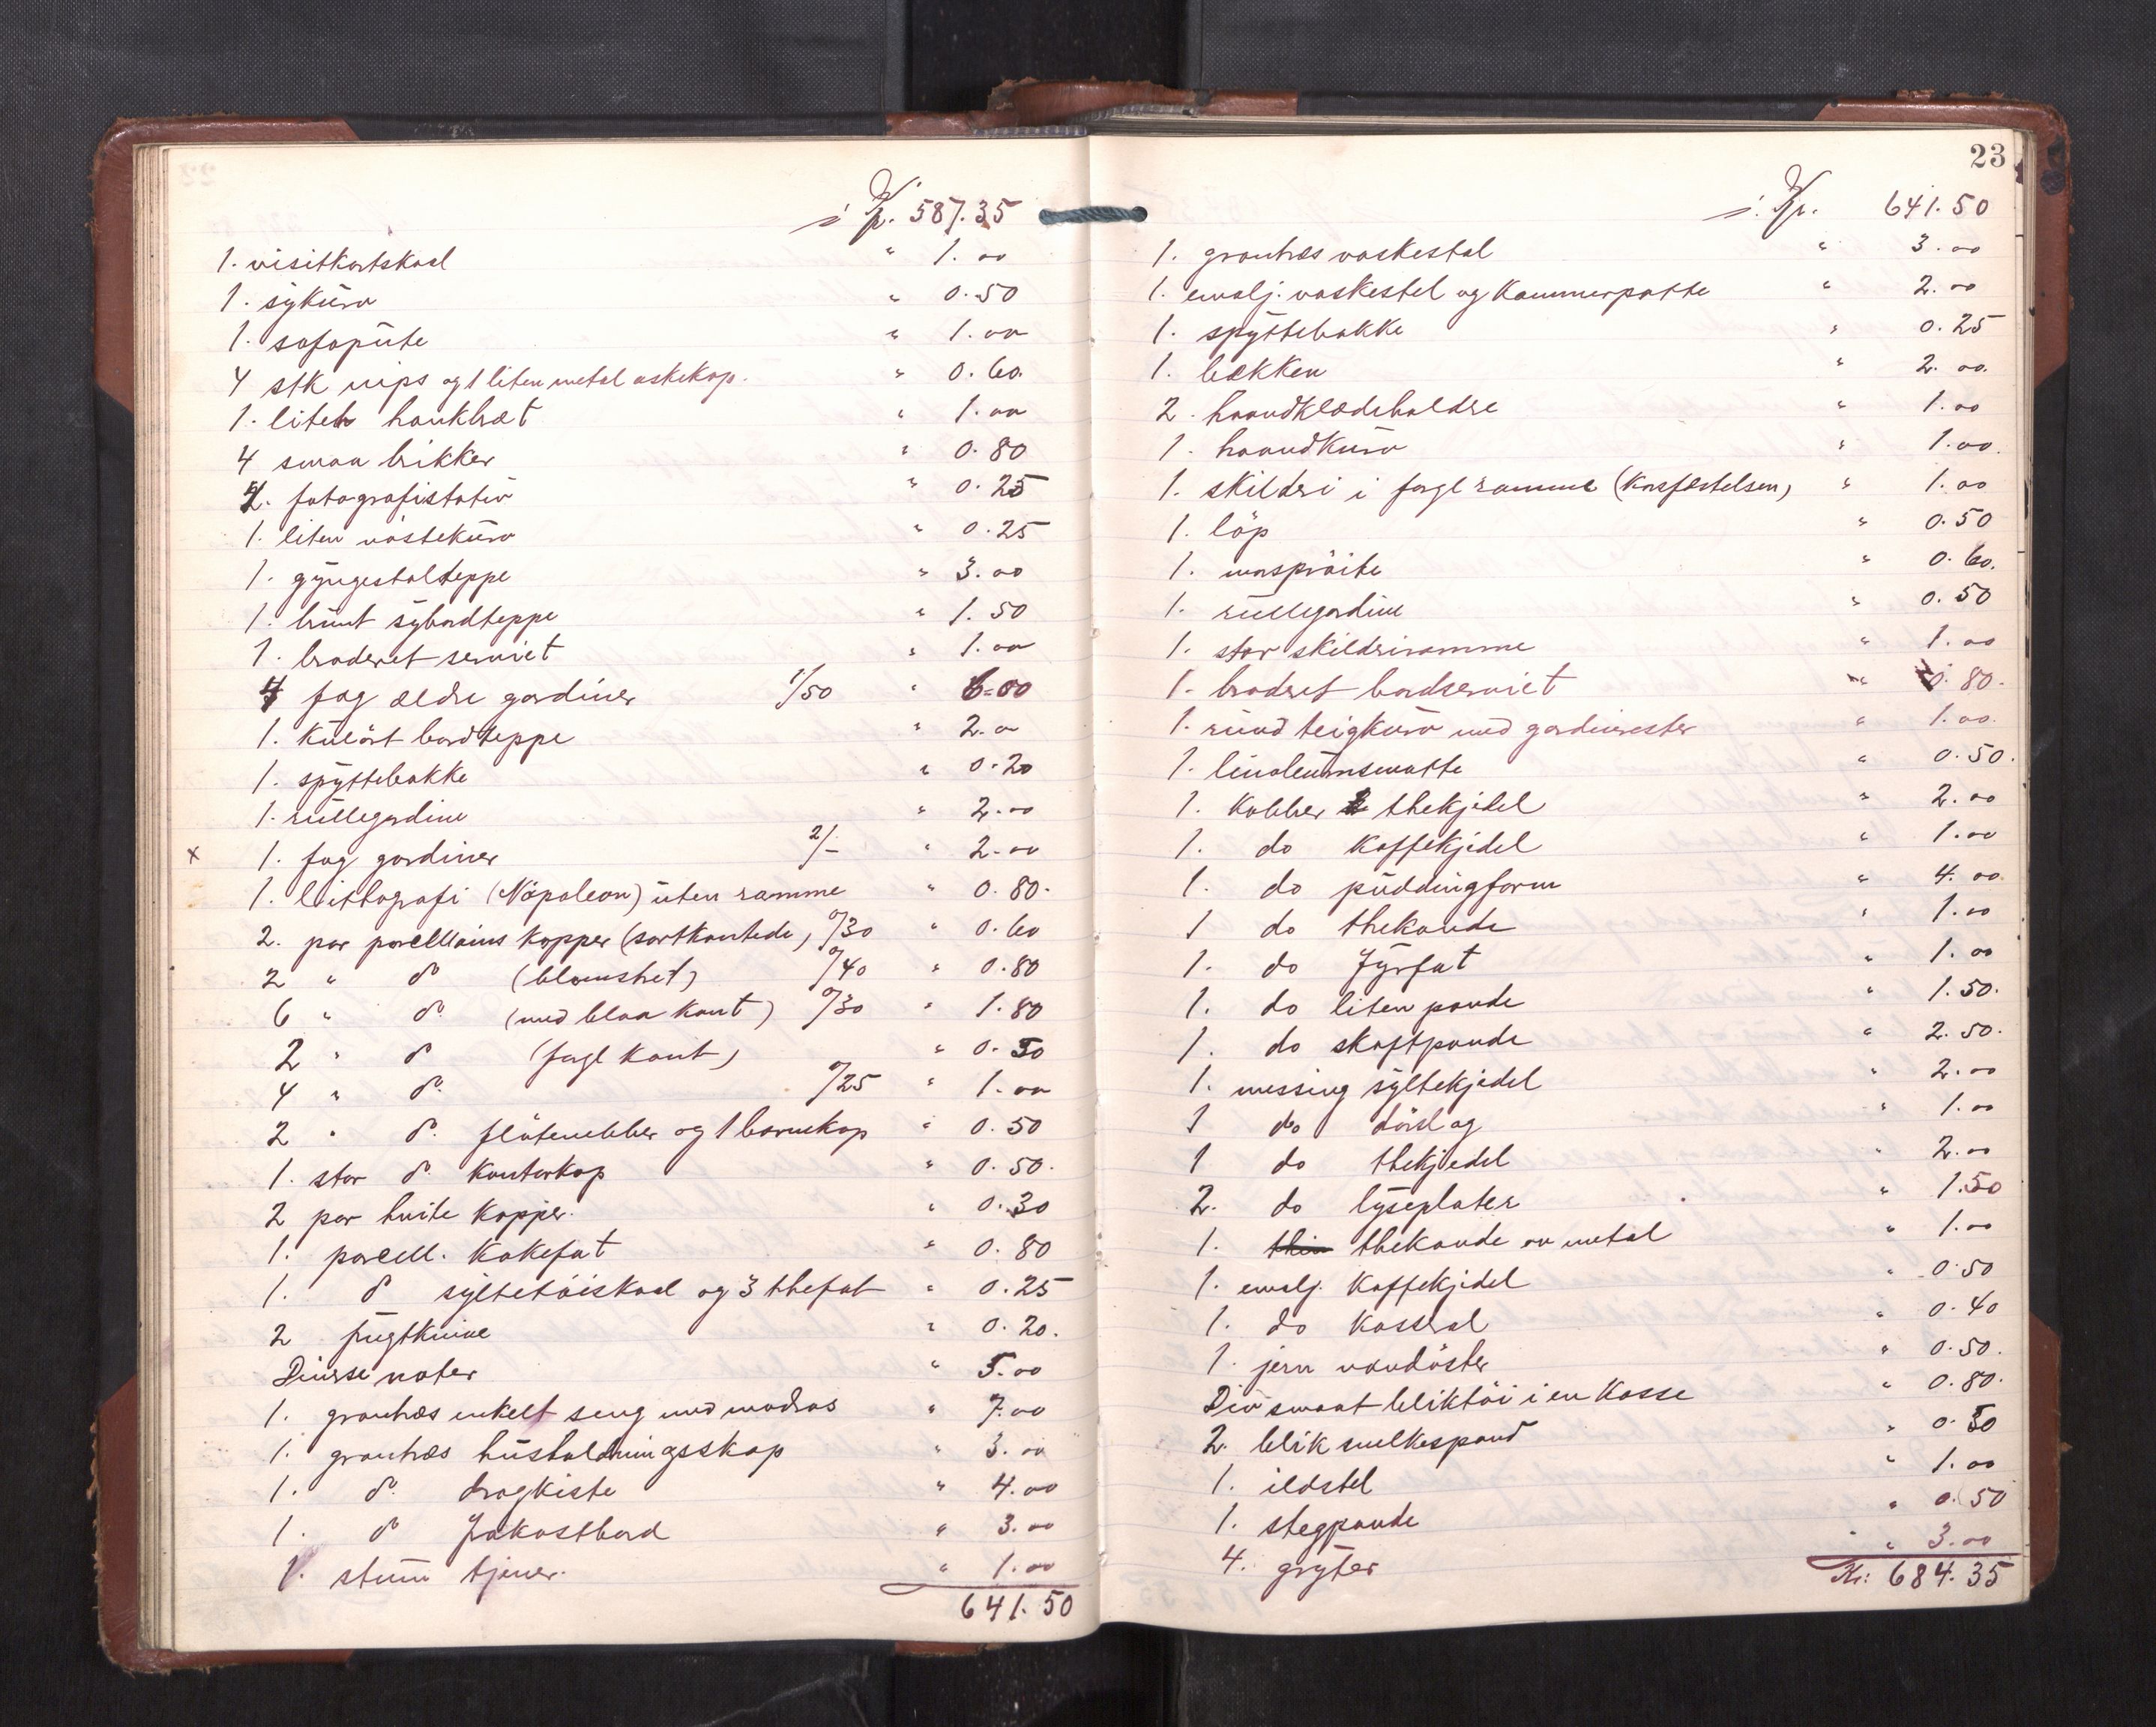 Tp. 587.35
1. visitkortskaal " 1.00
1. sykurv " 0.50
1. sofapute " 1.00
4 stk nips og 1 liten metal askekop. " 0.60.
1. liten hankbræt " 1.00
4 smaa brikker " 0.80
2. fotografistativ " 0.25
1. liten nöstekurv " 0.25
1. gyngestolteppe " 3.00
1. brunt sybordteppe " 1.50
1. broderet serviet " 1.00
4 fag ældre gardiner 1/50 " 6.00
1. kulört bordteppe " 2.00
1. spyttebakke " 0.20
1. rullegardin " 2.00
x 1. fag gardiner 2/- " 2.00
1. littografi (Napoleon) uten ramme " 0.80.
2. par porcellains kopper (sortkantede) 0/30 " 0.60
2 " do (blomstret) 0/40 " 0.80
6 " do (med blaa kant) 0/30 " 1.80
2 " do (fargl kant) " 0.50
4 " do 0/25 " 1.00
2 " do flötenebber og 1 barnekop " 0.50
1. stor do kontorkop " 0.50.
2 par hvite kopper. " 0.30
1. porcell. kakefat " 0.80
1. do syltetöiskaal og 3 thefat " 0.25
2 frugtknive " 0.20.
Diverse noter " 5.00
1. grantræs enkelt seng med madras " 7.00
1. grantræs husholdningsskap " 3.00
1. do dragkiste " 4.00
1. do frokostbord " 3.00
1. stum tjener. " 1.00
641.50
23
Tp. 641.50
1. grantræs vaskestol " 3.00
1. emalj. vaskestel og kammerpotte " 2.00
1. spyttebakke " 0.25
1. bekken " 2.00.
2. haandklædeholdre " 1.00
1. haandkurv " 1.00.
1. skilderi i fargl ramme (Korsfæstelsen) " 1.00
1. löp " 0.50
1. rosspröite " 0.60.
1. rullegardin " 0.50
1. stor skilderiramme " 1.00
1. broderet bordserviet " 0.80.
1. rund teigkurv med gardinrester " 1.00.
1. linoleumsmatte " 0.50.
1. Kobber thekjedel " 2.00
1. do kaffekjedel " 1.00
1. do puddingform " 4.00.
1 do thekande " 1.00
1. do fyrfat " 1.00
1. do liten pande " 1.50.
1. do skaftpande " 2.50.
1. messing syltekjedel " 2.00
1 do dörslag " 1.00
1 do thekjedel " 2.00
2. do lyseplater " 1.50
1. thekande av metal " 1.00
1. emalj. kaffekjedel " 0.50
1. do kasserol " 0.40
1. jern vandöster " 0.50.
Div smaat bliktöi i en kasse " 0.80.
2. blik melkespand " 0.50
1. ildstel " 1.00
1. stegpande " 0.50
4. gryter " 3.00
Kr: 684.35